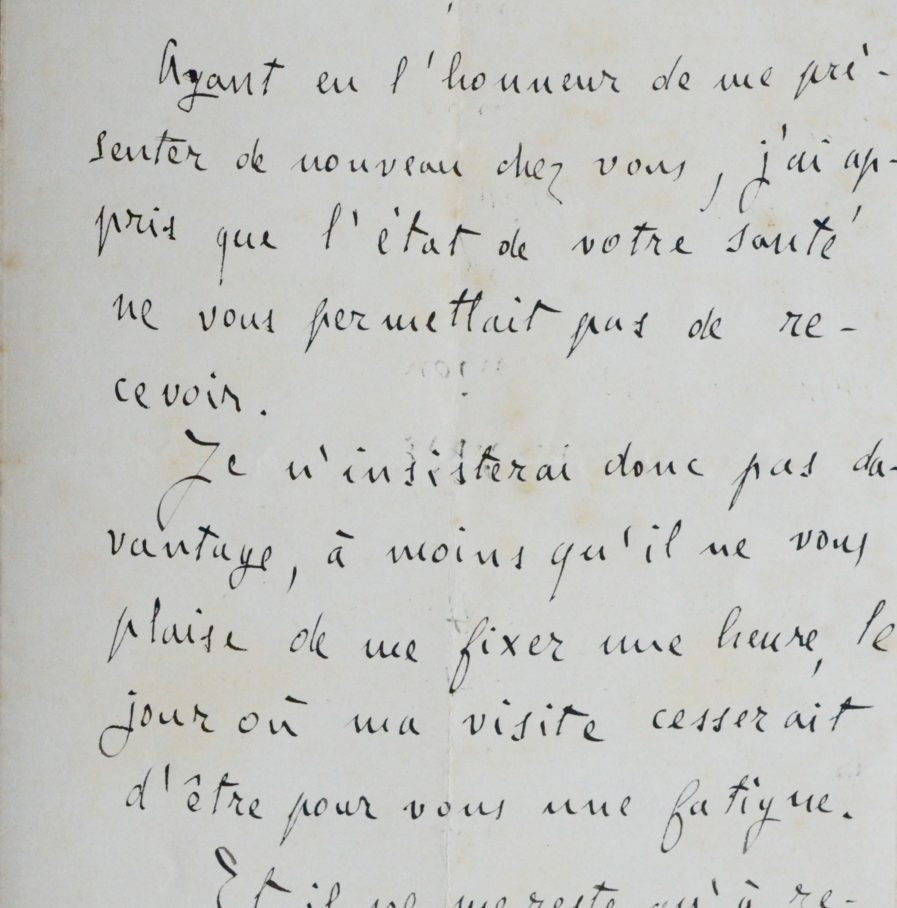 Ayant eu l'honneur de me pré-
senter de nouveau chez vous, j'ai ap-
pris que l'état de votre santé
ne vous permettait pas de re-
cevoir.
Je n'insisterai donc pas da-
vantage, à moins qu'il ne vous
plaise de me fixer une heure, le
jour où ma visite cesserait
d'être pour vous une fatigue.
Et il ne me reste qu'à re-